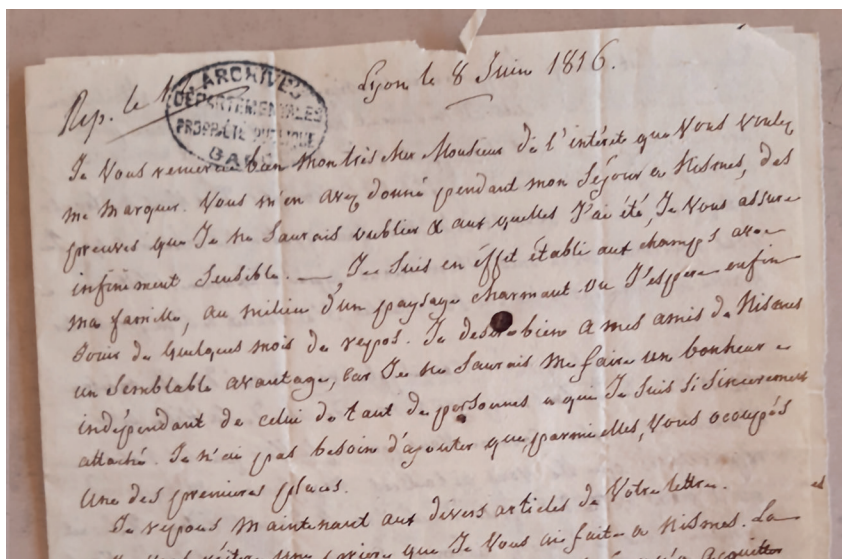 Lyon le 8 Juin 1816.
Rep. le
ARCHIVES
DÉPARTEMENTALES
PROPRIÉTÉ PUBLIQUE
GARD
Je Vous remercie bien Mon très cher Monsieur de l'intérêt que Vous voulez
me marquer. Vous m'en avez donné pendant mon Séjour a Nismes, des
preuves que Je ne Saurais oublier & aux quelles J'ai été, Je Vous assure
infiniment Sensible. — Je Suis en éffet établi aux champs avec
ma famille, au milieu d'un paysage charmant ou J'espère enfin
Jouir de quelques mois de repos. Je desire bien a mes amis de Nismes
un Semblable avantage, car Je ne Saurais me faire un bonheur
indépendant de celui de tant de personnes a qui Je Suis Si Sincerement
attaché. Je n'ai pas besoin d'ajouter que, parmi elles, Vous occupés
Une des premieres places.
Je repons Maintenant aux divers articles de Votre lettre.
une que Je Vous ai faite a Nismes. La